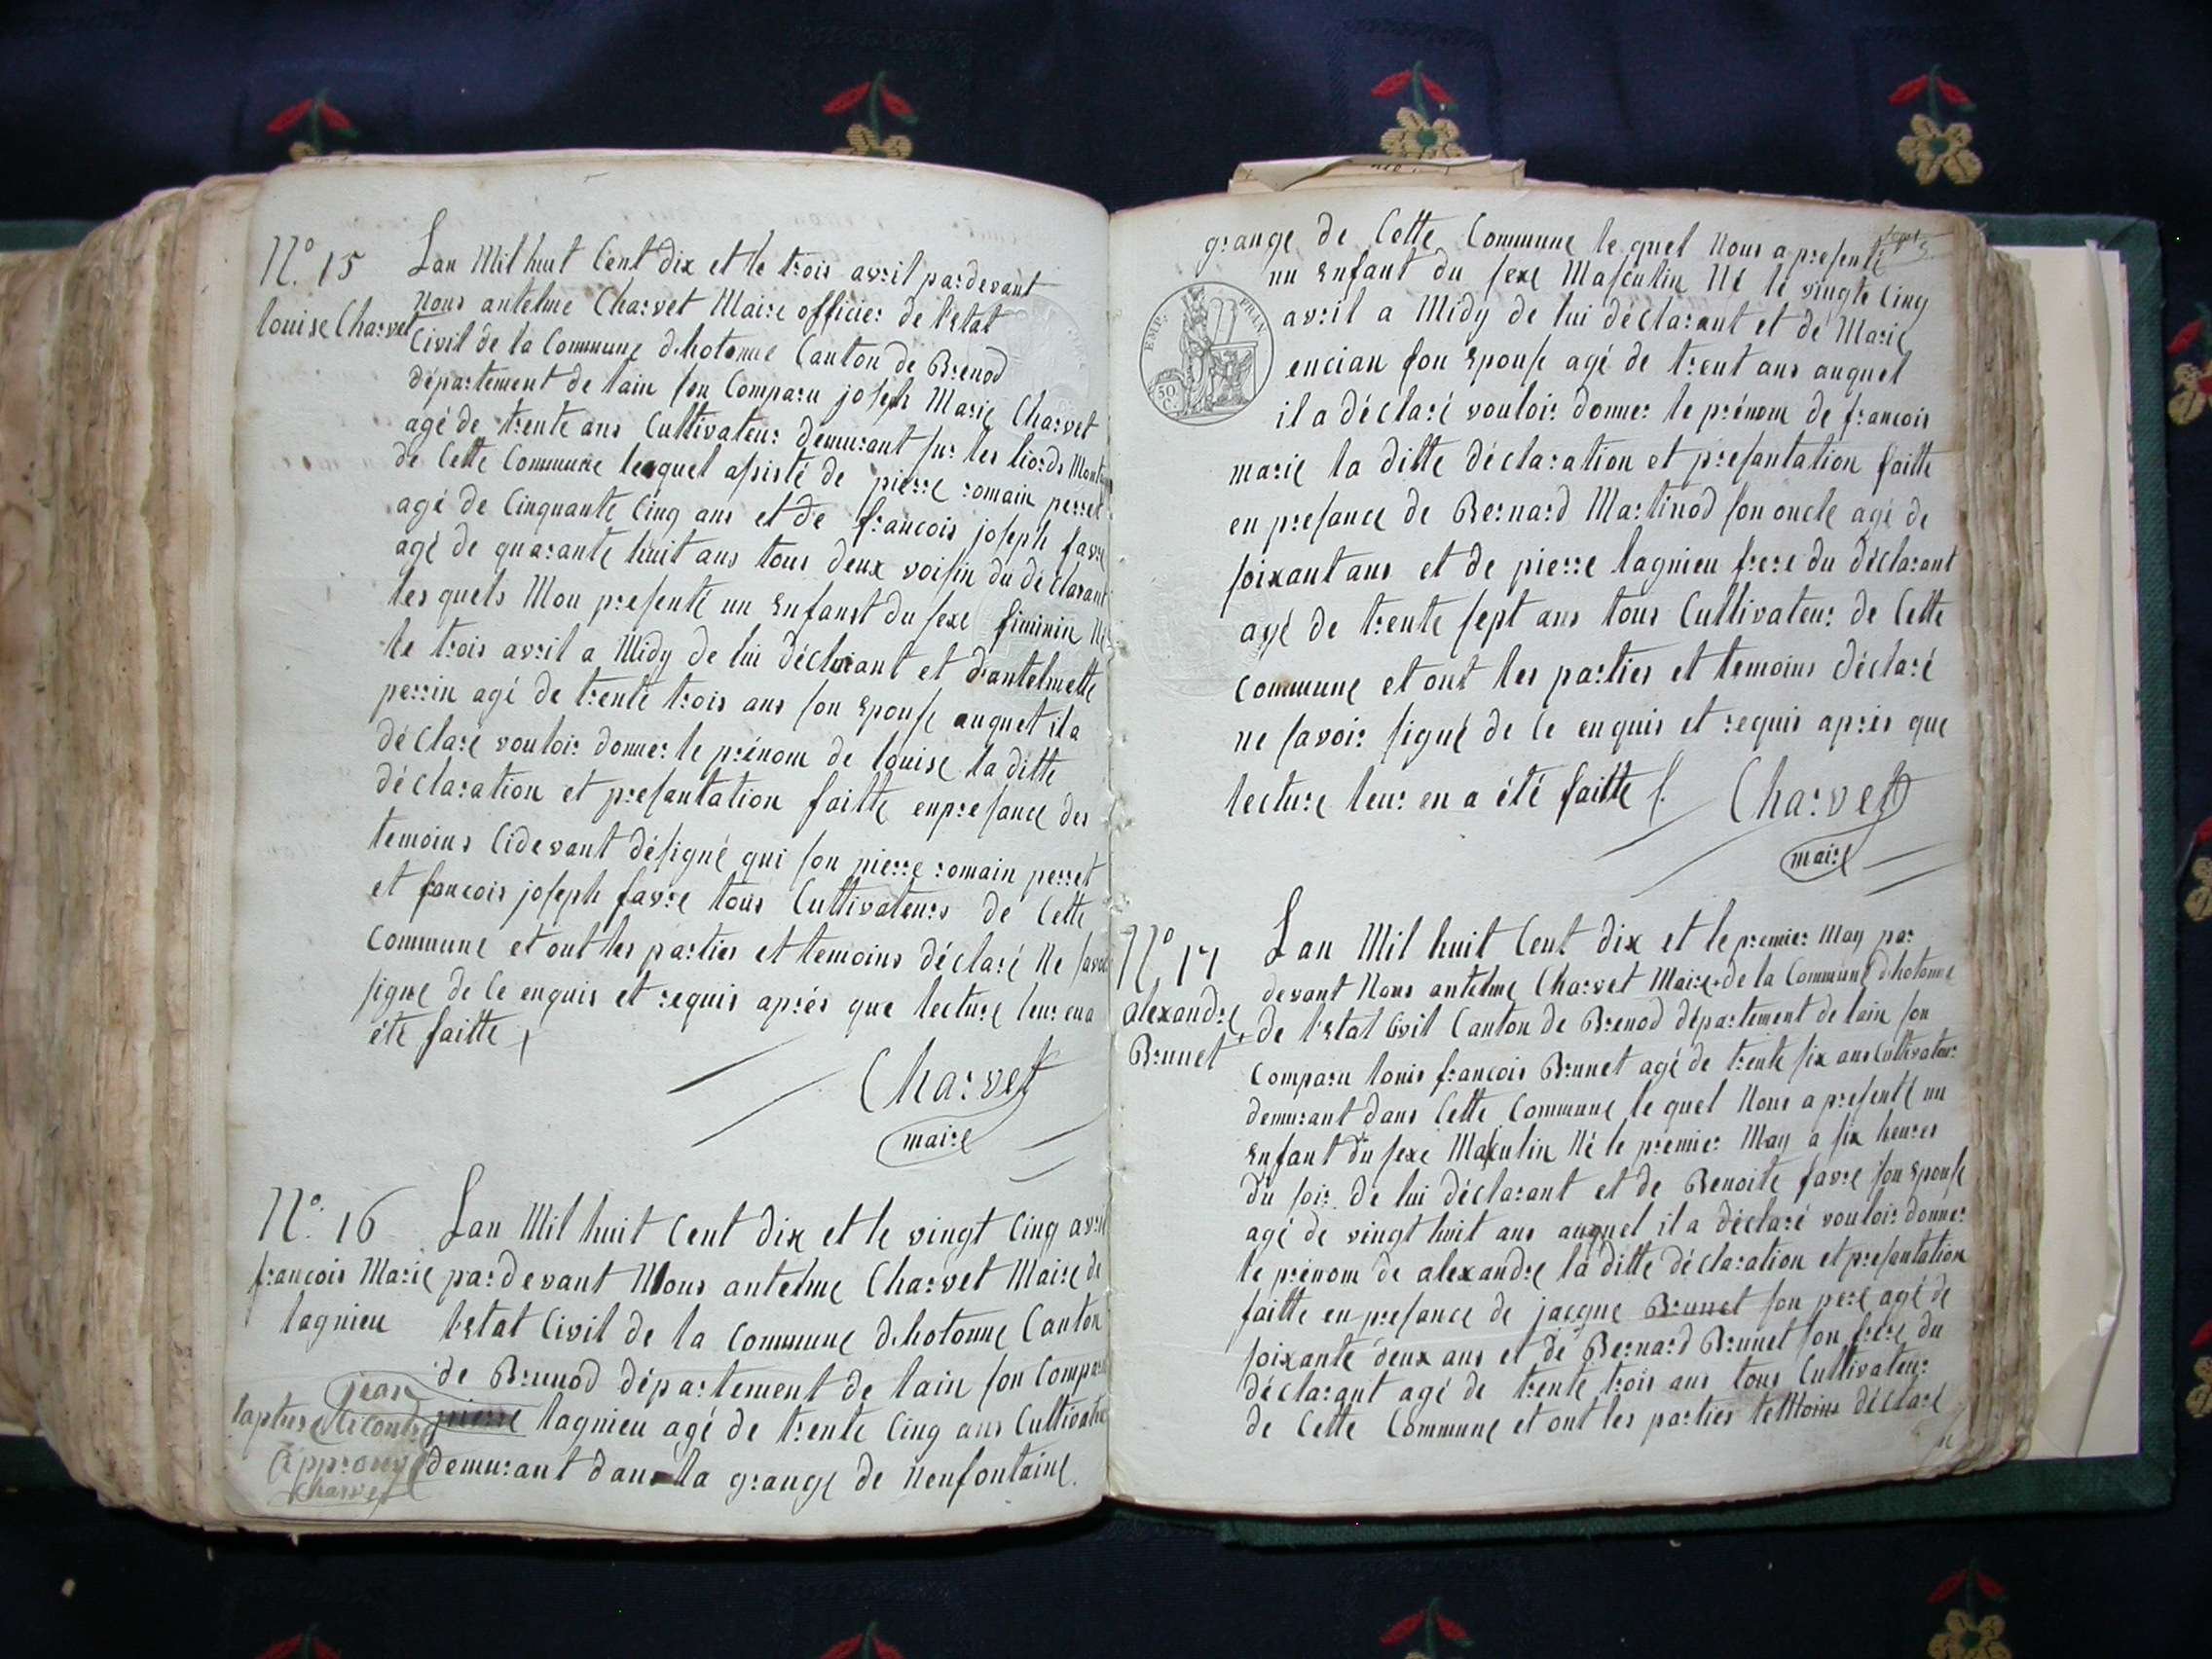 N.° 15
louise Charvet
Lan Mil huit Cent dix et le trois avril pardevant
Nous antelme Charvet Maire officier de l'Etat
Civil de la Commune dhotonne Canton de Brenod
département de lain son Comparu joseph Marie Charvet
agé de trente ans Cultivateur demurant sur les
de Cette Commune lequel assisté de pierre romain perret
agé de Cinquante Cinq ans et de francois joseph favre
agé de quarante huit ans tous deux voisin du déclarant
lesquels Mon presenté un Enfanst du sexe fiminin Né
le trois avril a Midy de lui déclarant et d'antelmette
perrin agé de trente trois ans son Epouse auquel il a
déclaré vouloir donner le prénom de louise la ditte
déclaration et presantation faitte enpresance des
temoins Cidevant désigné qui son pierre romain perret
et francois joseph favre tous Cultivateurs de Cette
Commune et ont les parties et temoins déclaré Ne
signe de Ce enquis et requis aprés que lecture leur ena
été faitte
Charvet
maire
N.° 16
francois Marie
lagnieu
Lan Mil huit Cent dix et le vingt Cinq avril
pardevant Nous antelme Charvet Maire de
l'Etat Civil de la Commune dhotonne Canton
de Brunod département de lain son Comparu
jean
pierre lagnieu agé de trente Cinq ans Cultivateur
approuvé
Charvet
demurant dans la grange de Neufontaine
grange de Cette Commune le quel Nous a presenté
un Enfant du sexe Masculin Né le vingte Cinq
avril a Midy de lui déclarant et de Marie
EMP. FRAN.
50 C.
encian son Epouse agé de trent ans auquel
il a déclaré vouloir donner le prénom de francois
marie la ditte déclaration et presantation faitte
en presance de Bernard Martinod son oncle agé de
soixant ans et de pierre lagnieu frere du déclarant
agé de trente sept ans tous Cultivateur de Cette
Commune et ont les parties et temoins déclaré
ne savoir signé de Ce enquis et requis après que
lecture leur en a été faitte
Charvet
maire
N.° 17
alexandre
Brunet
Lan Mil huit Cent dix et le premier May par
devant Nous antelme Charvet Maire + de la Commune dhotonne
+ de l'Etat Civil Canton de Brenod département de lain son
Comparu louis francois Brunet agé de trente six ans Cultivateur
demurant dans Cette Commune le quel Nous a presenté un
Enfant du sexe Masculin Né le premier May a six heures
du soir de lui déclarant et de Benoite favre son Epouse
agé de vingt huit ans auquel il a déclaré vouloir donner
le prénom de alexandre la ditte déclaration et presentation
faitte en presance de jacque Brunet son pere agé de
soixante deux ans et de Bernard Brunet son frere du
déclarant agé de trente trois ans tous Cultivateur
de Cette Commune et ont les parties teMoins déclaré